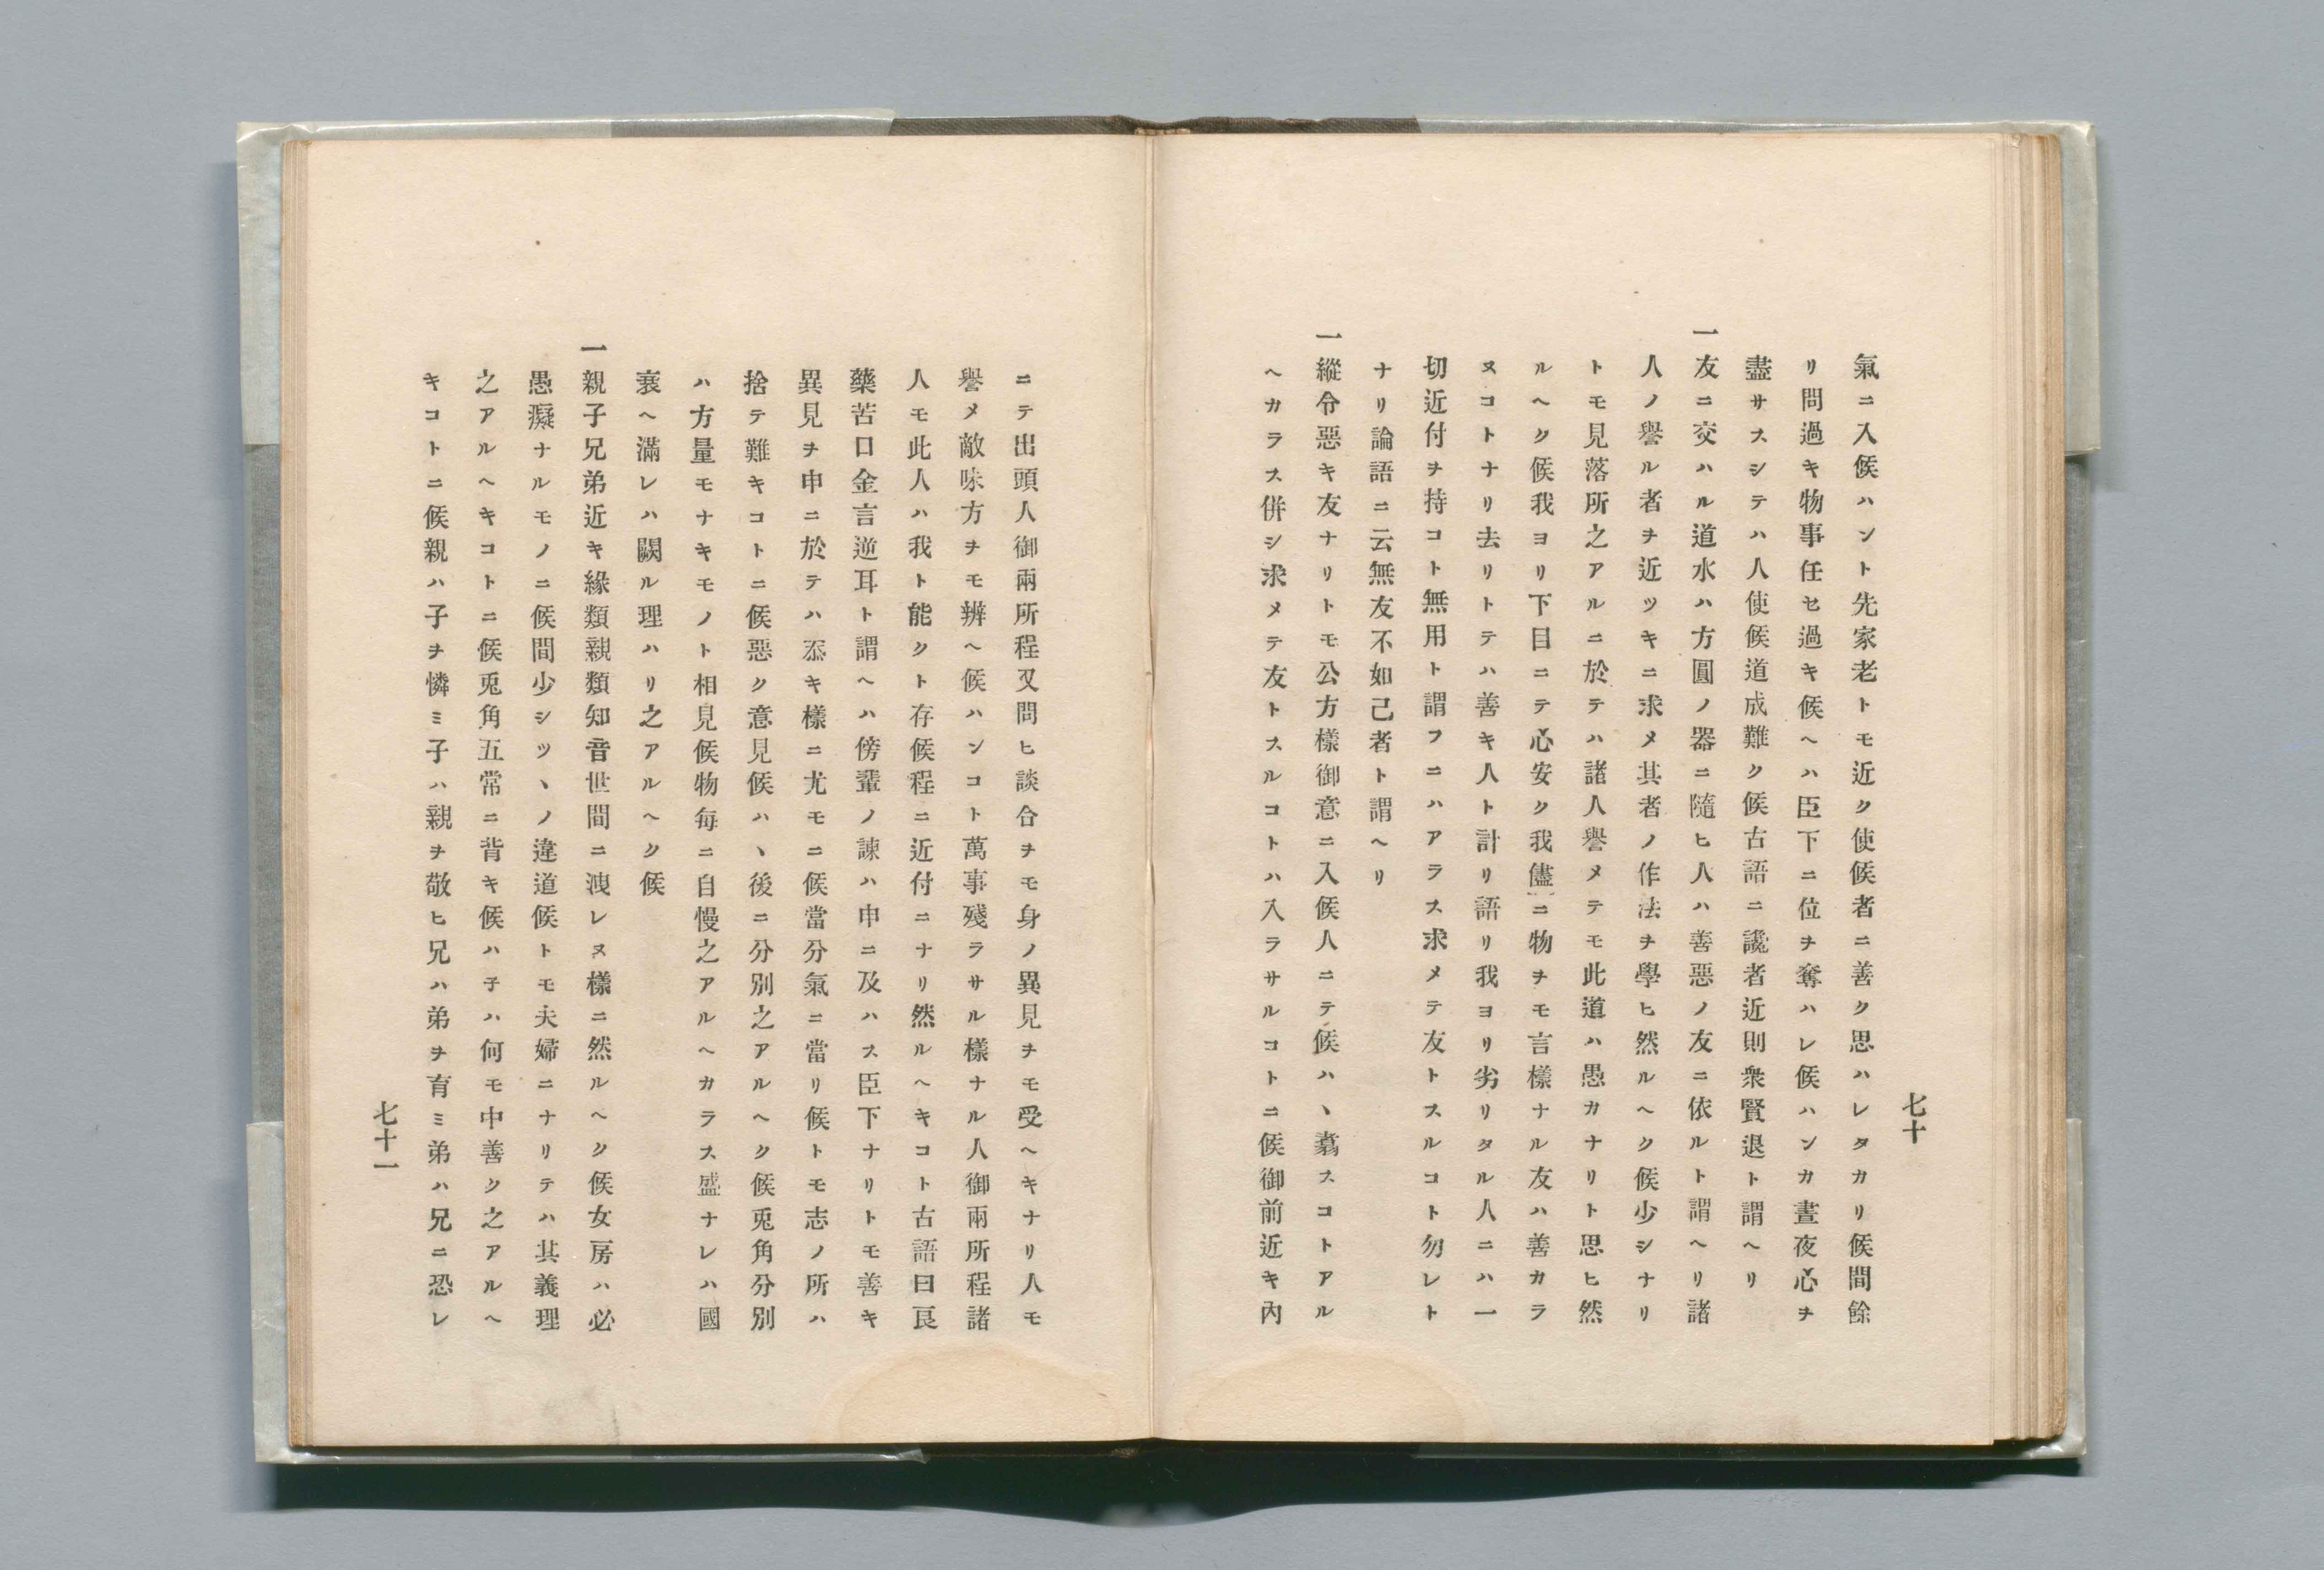 七十
氣ニ入候ハント先家老トモ近ク使候者ニ善ク思ハレタカリ候間餘
リ問過キ物事任セ過キ候ヘハ臣下ニ位ヲ奪ハレ候ハンカ晝夜心ヲ
盡サスシテハ人使候道成難ク候古語ニ讒者近則衆賢退ト謂ヘリ
一友ニ交ハル道水ハ方圓ノ器ニ隨ヒ人ハ善惡ノ友ニ依ルト謂ヘリ諸
人ノ譽ル者ヲ近ツキニ求メ其者ノ作法ヲ學ヒ然ルヘク候少シナリ
トモ見落所之アルニ於テハ諸人譽メテモ此道ハ愚カナリト思ヒ然
ルヘク候我ヨリ下目ニテ心安ク我儘ニ物ヲモ言樣ナル友ハ善カラ
ヌコトナリ去リトテハ善キ人ト計リ語リ我ヨリ劣リタル人ニハ一
切近付ヲ持コト無用ト謂フニハアラス求メテ友トスルコト勿レト
ナリ論語ニ云無友不如己者ト謂ヘリ
一縱令惡キ友ナリトモ公方樣御意ニ入候人ニテ候ハヽ翥スコトアル
ヘカラス併シ求メテ友トスルコトハ入ラサルコトニ候御前近キ內
ニテ出頭人御兩所程又問ヒ談合ヲモ身ノ異見ヲモ受ヘキナリ人モ
譽メ敵味方ヲモ辨ヘ候ハンコト萬事殘ラサル樣ナル人御兩所程諸
人モ此人ハ我ト能クト存候程ニ近付ニナリ然ルヘキコト古語曰良
藥苦口金言逆耳ト謂ヘハ傍輩ノ諫ハ申ニ及ハス臣下ナリトモ善キ
異見ヲ申ニ於テハ忝キ樣ニ尤モニ候當分氣ニ當リ候トモ志ノ所ハ
捨テ難キコトニ候惡ク意見候ハヽ後ニ分別之アルヘク候兎角分別
ハ方量モナキモノト相見候物每ニ自慢之アルヘカラス盛ナレハ國
衰ヘ滿レハ闕ル理ハリ之アルヘク候
一親子兄弟近キ緣類親類知音世間ニ洩レヌ樣ニ然ルヘク候女房ハ必
愚癡ナルモノニ候間少シツヽノ違道候トモ夫婦ニナリテハ其義理
之アルヘキコトニ候兎角五常ニ背キ候ハ子ハ何モ中善ク之アルヘ
キコトニ候親ハ子ヲ憐ミ子ハ親ヲ敬ヒ兄ハ弟ヲ育ミ弟ハ兄ニ恐レ
七十一